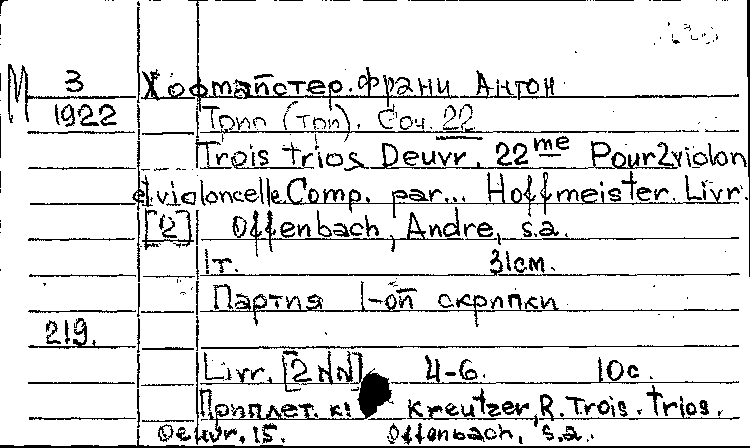 М 3 Хофмайстер. Франц Антон
1922 Трио (три). Соч. 22
Trois trios Oeuvr. 22me Pour 2 violon
et violoncelle. Comp. par... Hoffmeister. Livr.
[2] Offenbach, Andre, s.a.
1т. 31см.
Партия 1-ой скрипки
219.
Livr. [2 NN] 4-6. 10с.
Приплет. к: Kreutzer, R. Trois. trios.
Oeuvr. 15. Offenbach, s.a.